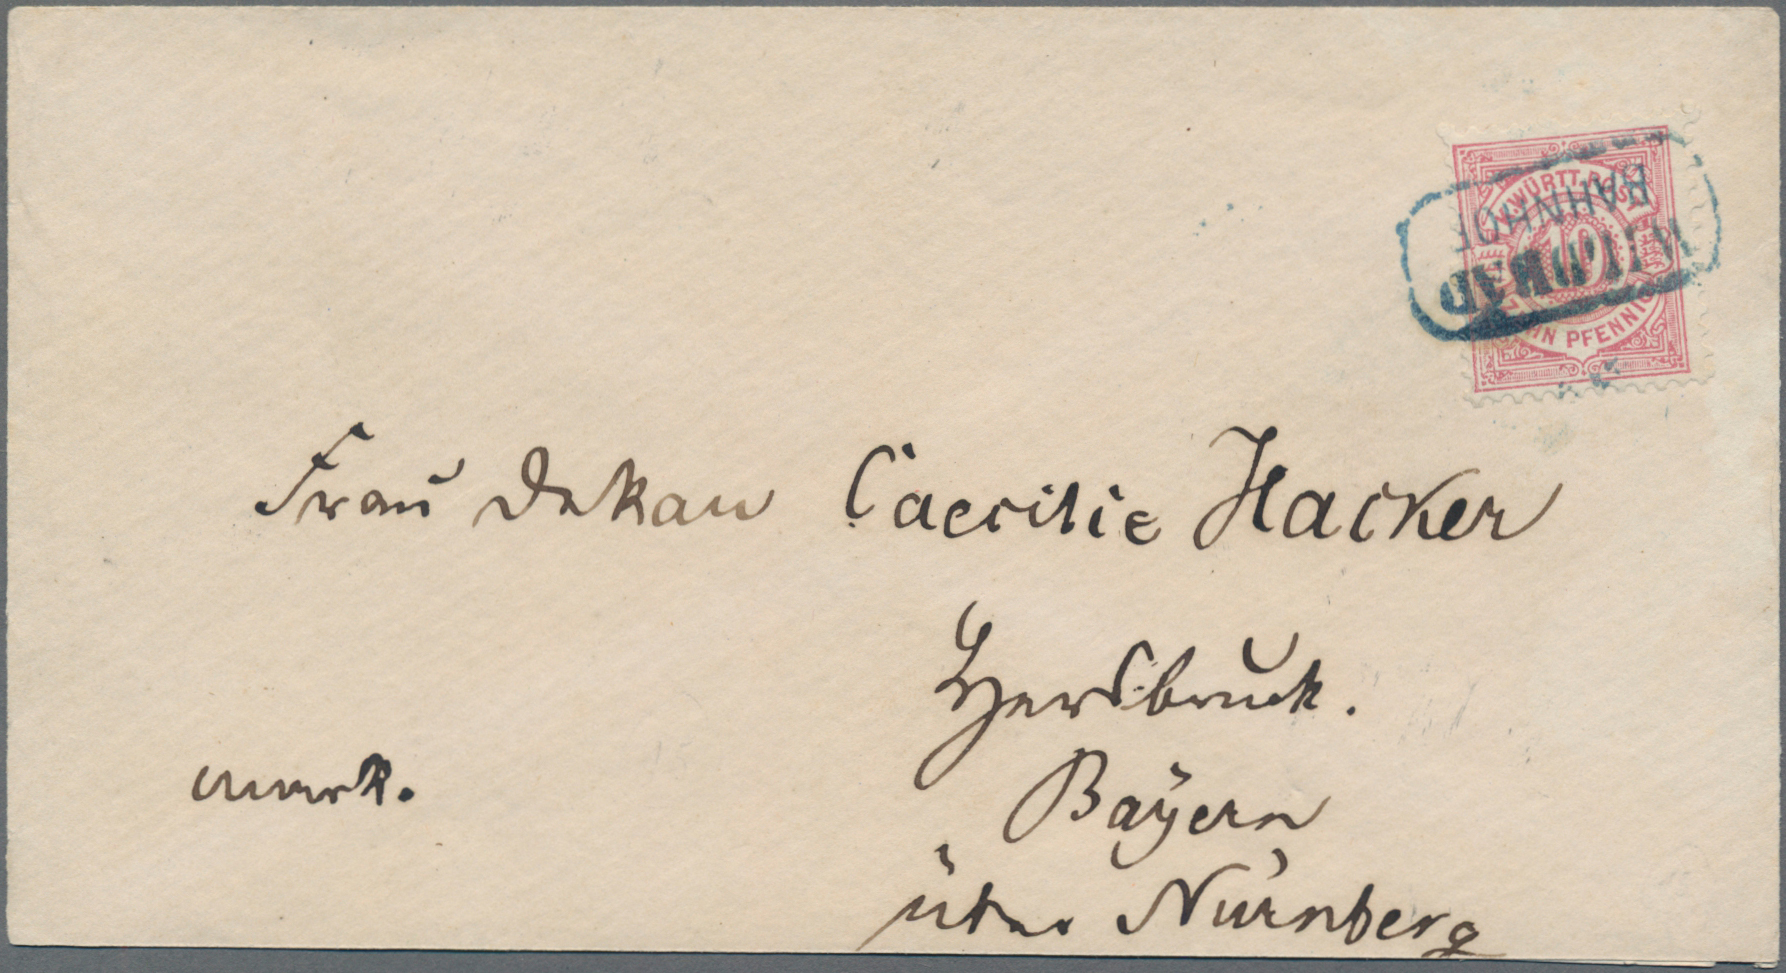 K. WÜRTT. POST
10
ZEHN PFENNIG
WILDBAD
BAHNHOF
Frau Dekan Caecilie Hacker
Hersbruck.
Bayern
über Nürnberg